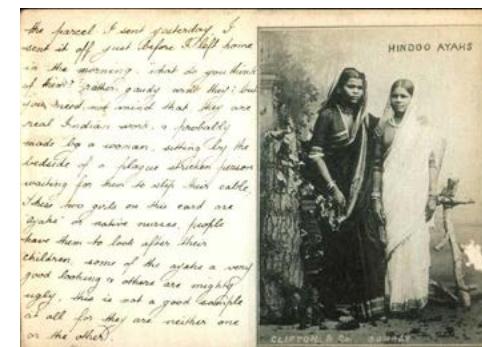 the parcel I sent yesterday, I
sent it off just before I left home
in the morning. what do you think
of them? rather gaudy arn't they; but
you need not mind that they are
real Indian work, & probably
made by a woman, sitting by the
bedside of a plague stricken person
waiting for them to slip their cable.
These two girls on this card are
"ayahs" or native nurses, people
have them to look after their
children, some of the ayahs a very
good looking & others are mighty
ugly, this is not a good sample
at all for they are neither one
or the other.
HINDOO AYAHS
CLIFTON & Co. BOMBAY